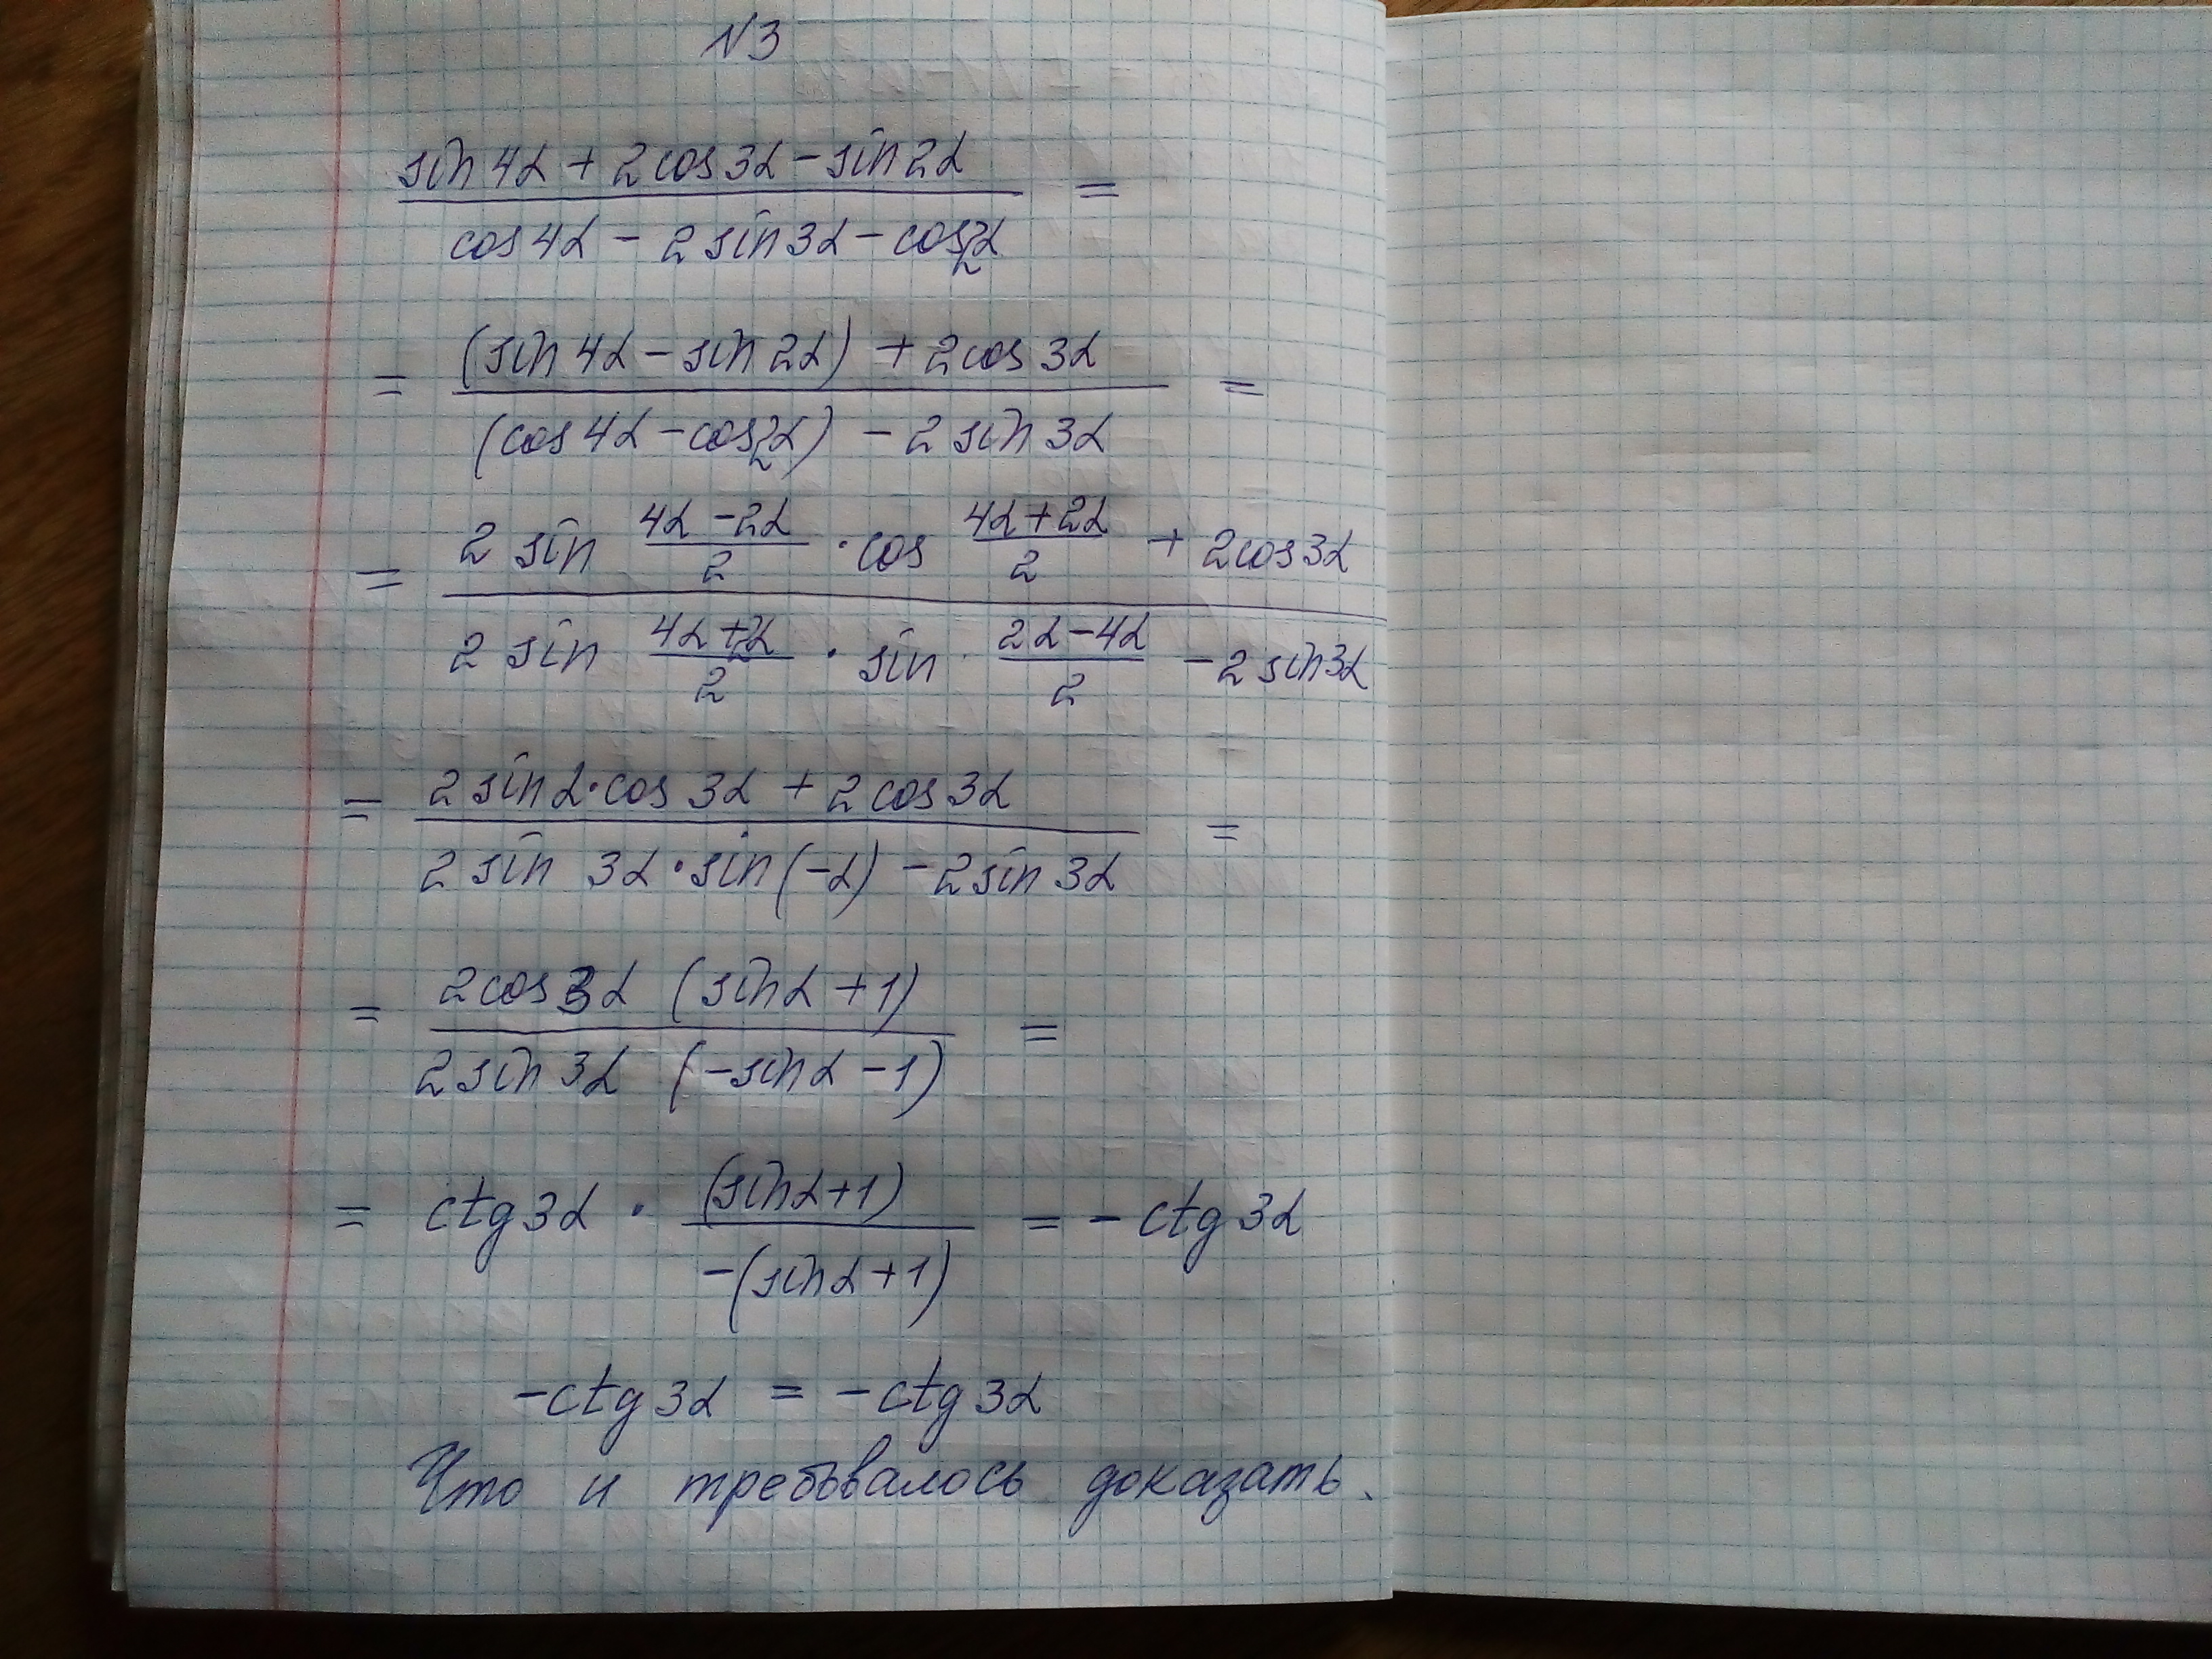 N3
sin4α + 2cos3α - sin2α
cos4α - 2sin3α - cos2α =
= (sin4α - sin2α) + 2cos3α
(cos4α - cos2α) - 2sin3α =
= 2 sin (4α - 2α)/2 · cos (4α + 2α)/2 + 2cos3α
2 sin (4α + 2α)/2 · sin (2α - 4α)/2 - 2sin3α
=
= 2sinα · cos3α + 2cos3α
2 sin 3α · sin(-α) - 2sin3α =
= 2cos3α (sinα + 1)
2sin3α (-sinα - 1) =
= ctg3α · (sinα+1) / -(sinα+1) = - ctg3α
-ctg3α = -ctg3α
Что и требывалось доказать.